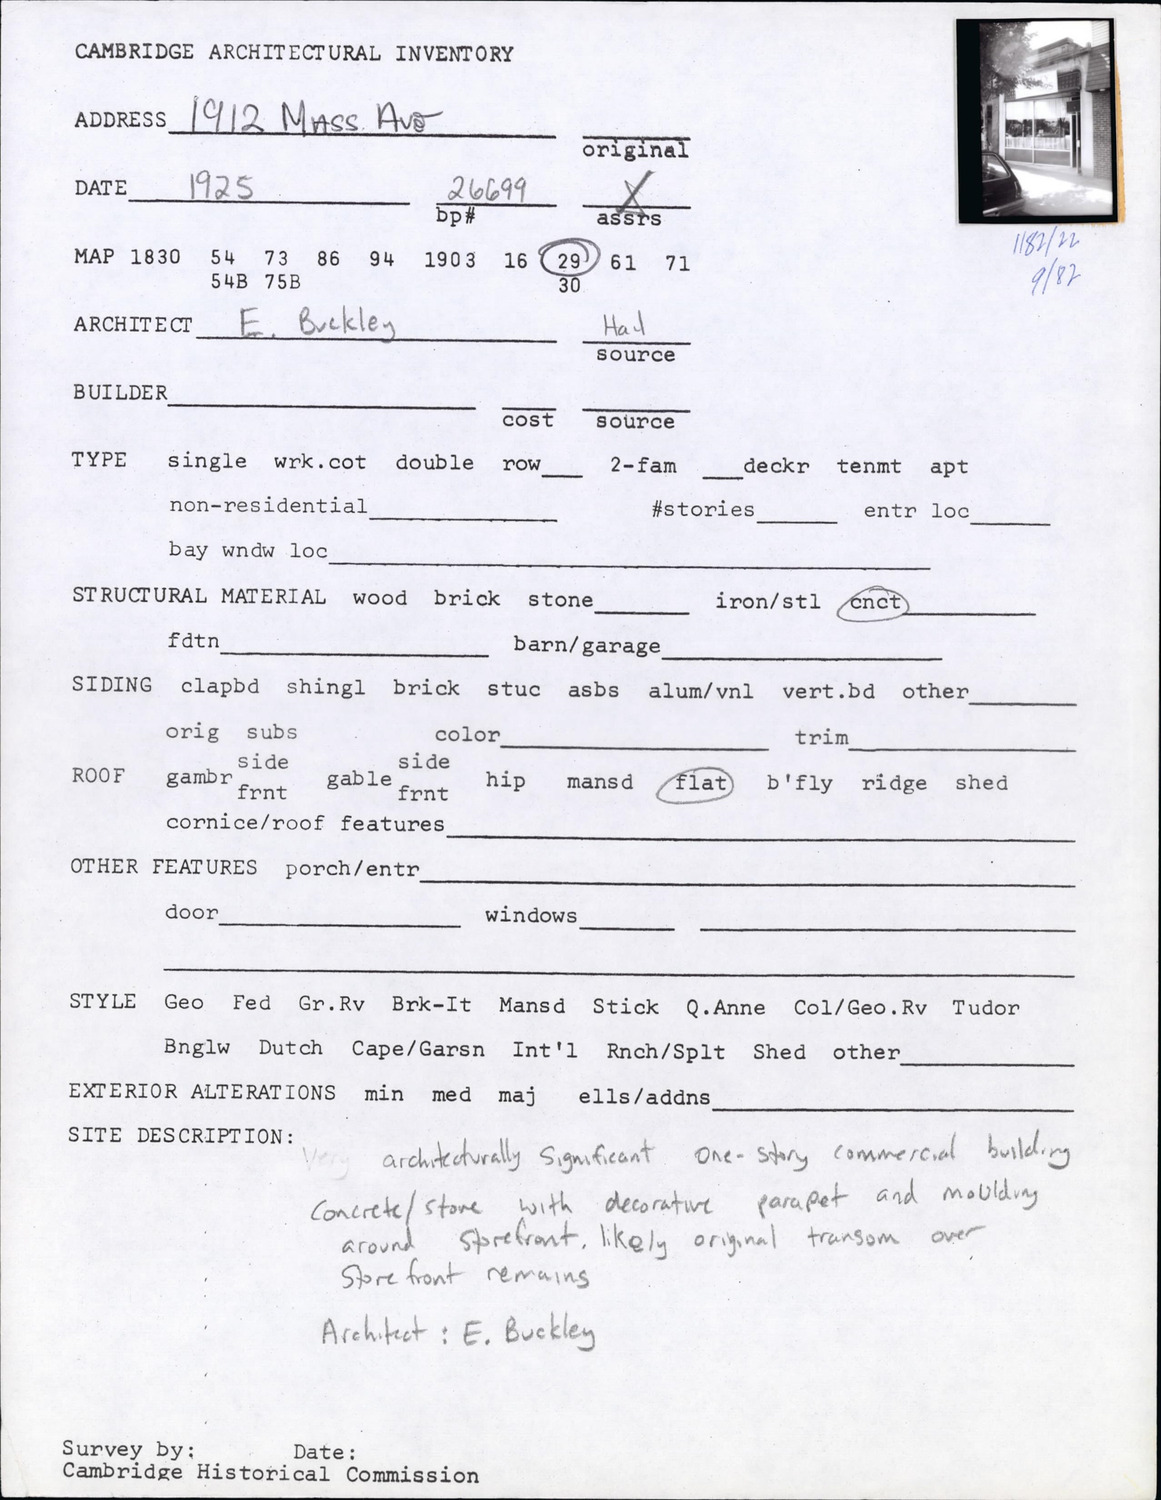 CAMBRIDGE ARCHITECTURAL INVENTORY
ADDRESS 1912 Mass Ave
original
DATE 1925 26699 X
bp# assrs
1182/22
9/82
MAP 1830 54 73 86 94 1903 16 29 61 71
54B 75B 30
ARCHITECT E. Buckley
source
BUILDER
cost source
TYPE single wrk.cot double row___ 2-fam ___deckr tenmt apt
non-residential #stories entr loc
bay wndw loc
STRUCTURAL MATERIAL wood brick stone iron/stl cnct
fdtn barn/garage
SIDING clapbd shingl brick stuc asbs alum/vnl vert.bd other
orig subs color trim
side side
ROOF gambr gable hip mansd flat b'fly ridge shed
frnt frnt
cornice/roof features
OTHER FEATURES porch/entr
door windows
STYLE Geo Fed Gr.Rv Brk-It Mansd Stick Q.Anne Col/Geo.Rv Tudor
Bnglw Dutch Cape/Garsn Int'l Rnch/Splt Shed other
EXTERIOR ALTERATIONS min med maj ells/addns
SITE DESCRIPTION:
Very architecturally significant one-story commercial building
Concrete/stone with decorative parapet and moulding
around storefront, likely original transom over
Storefront remains
Architect: E. Buckley
Survey by: Date:
Cambridge Historical Commission